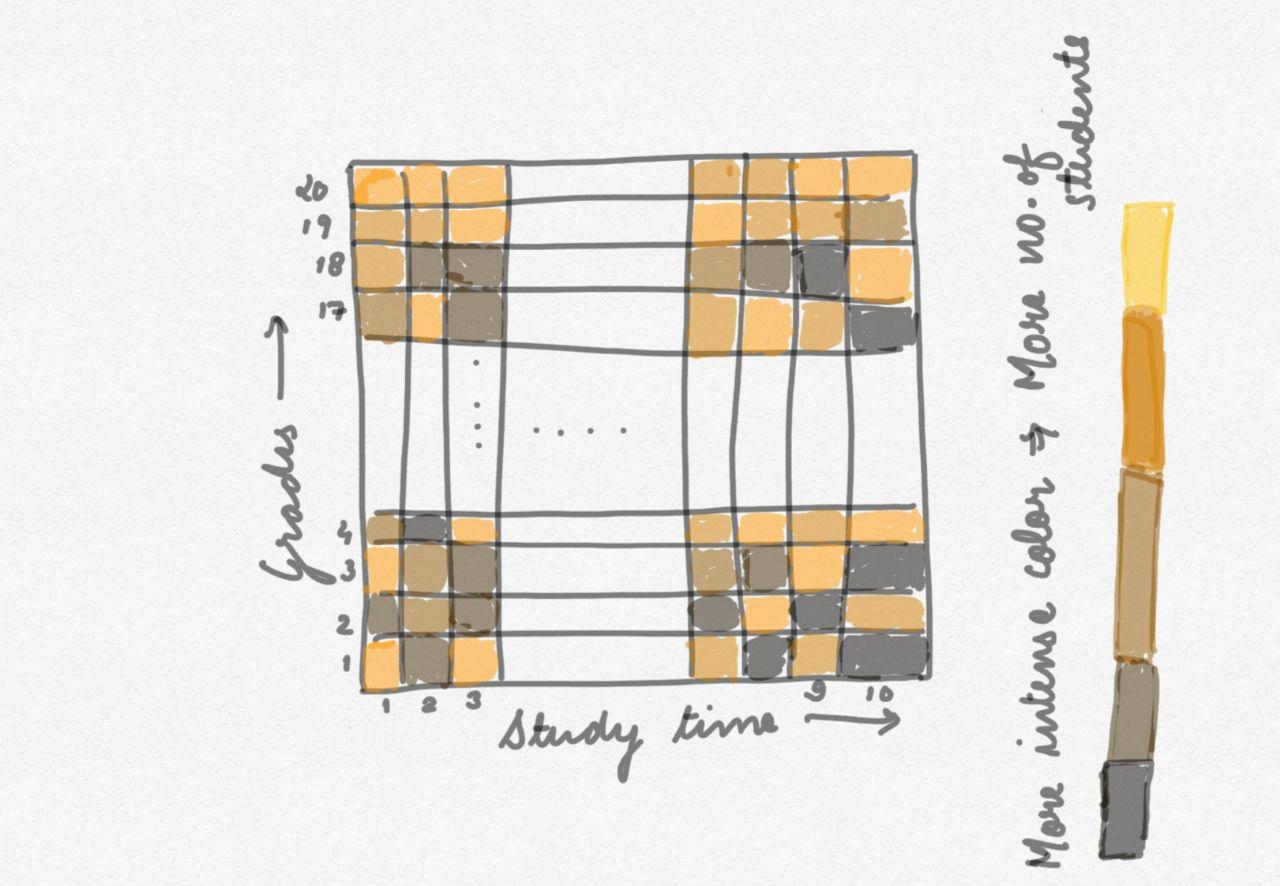 20
19
18
17
4
3
2
1
Grades →
1 2 3 9 10
Study time →
More intense color ⇒ More no. of
students